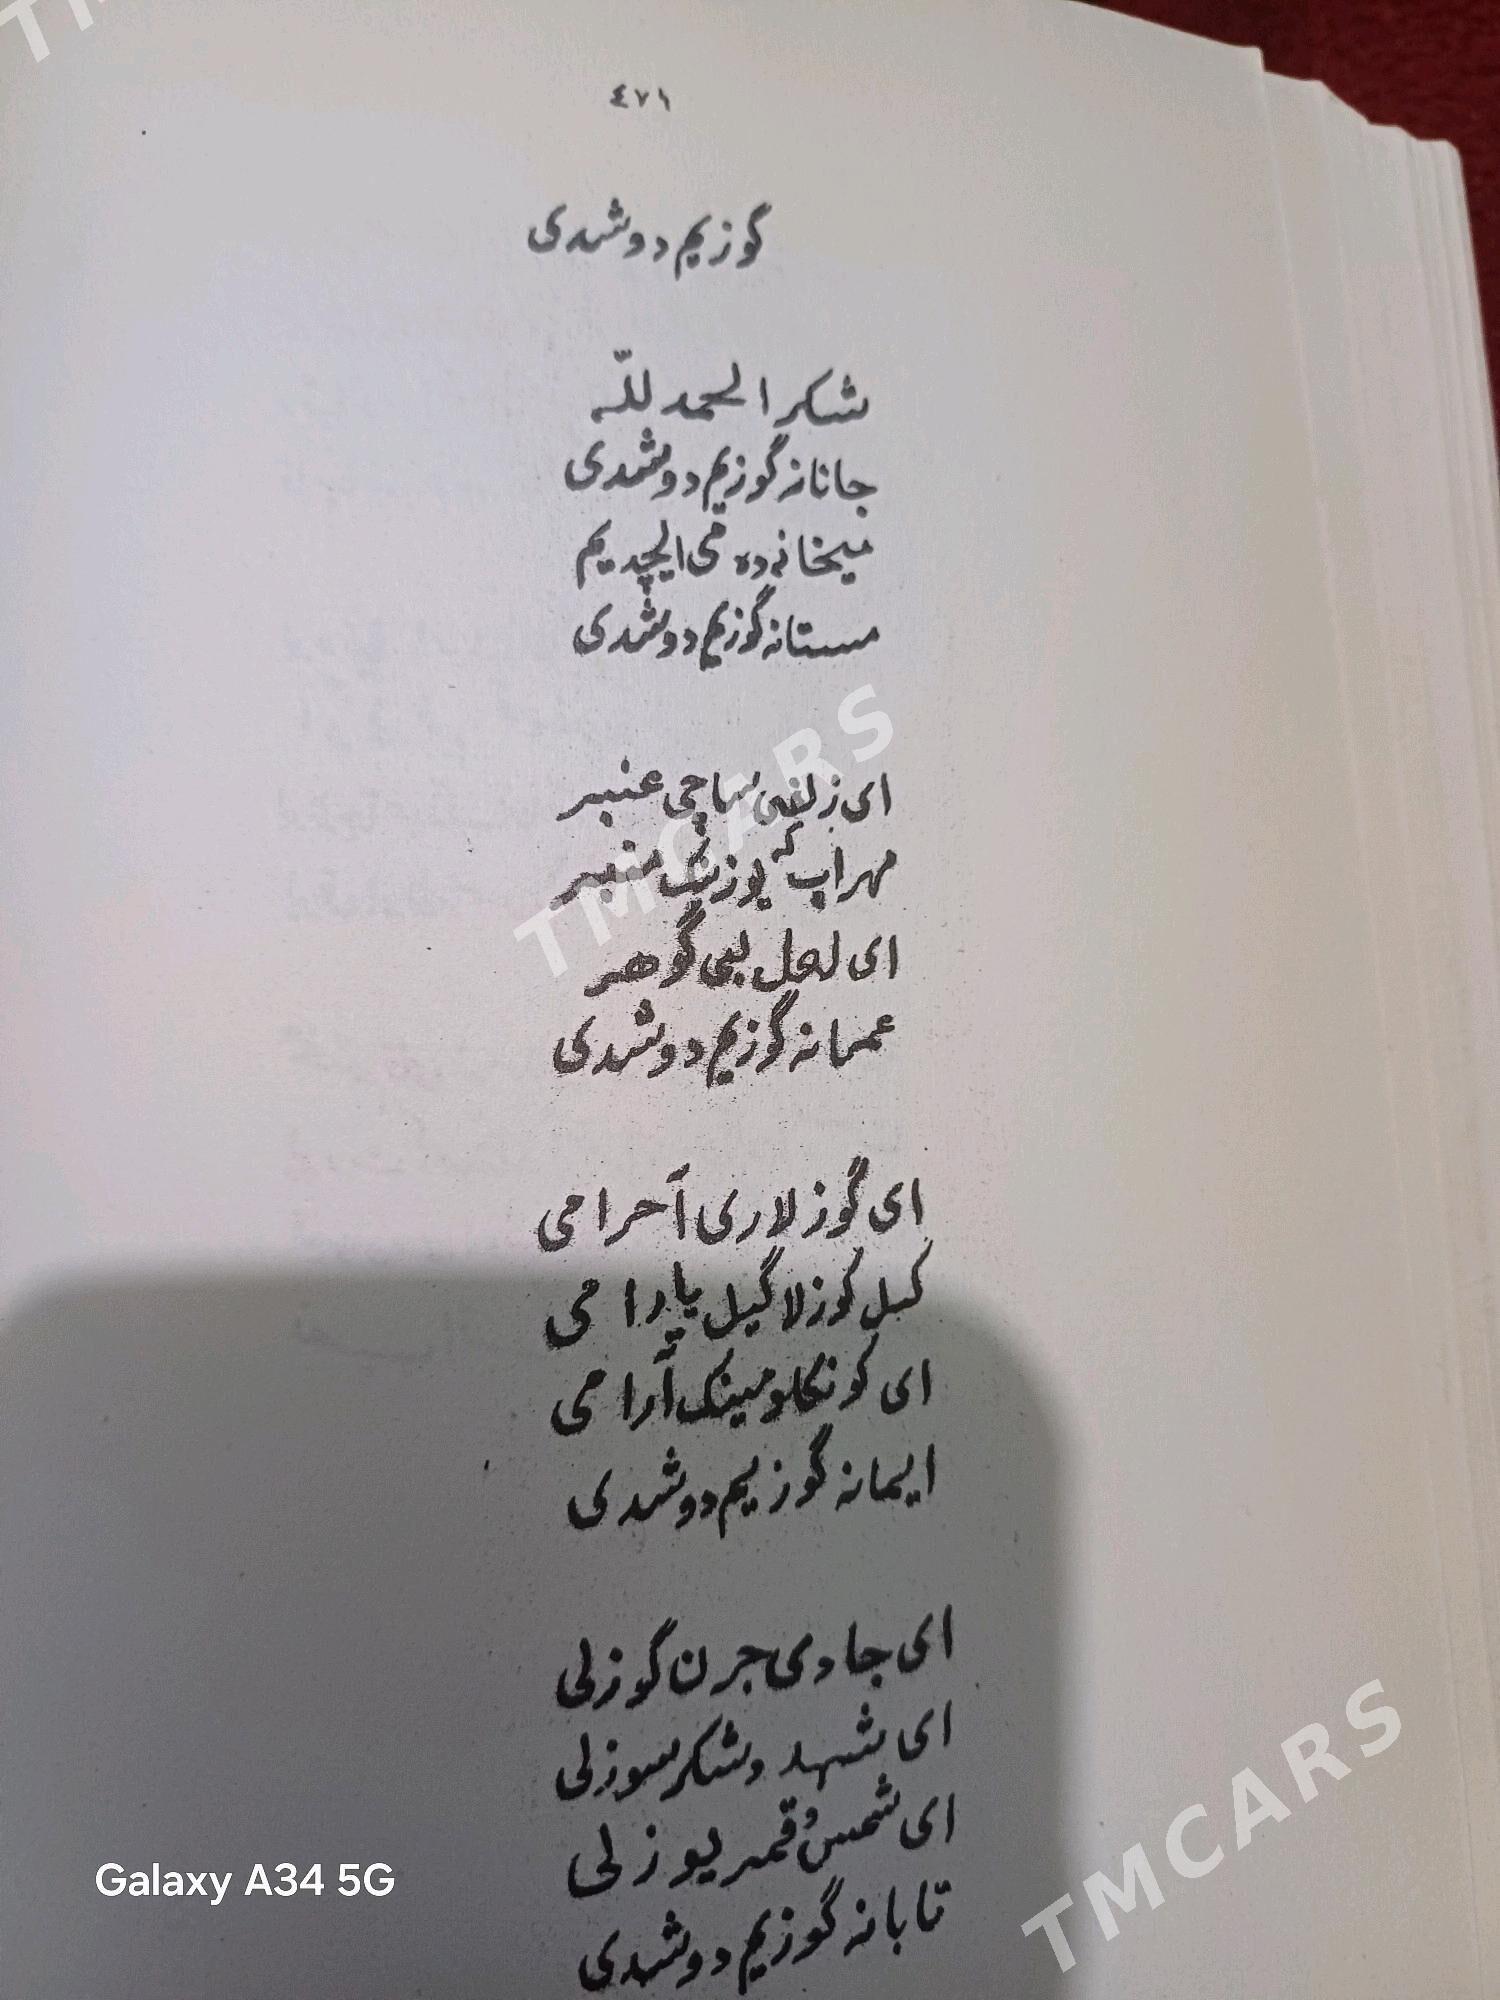 ٤٧١
گوزیم دوشدی
شکر الحمد للّه
جانانه گوزیم دوشدی
میخانه ده می ایچدیم
مستانه گوزیم دوشدی
ای زلفی ساچی عنبر
مهراب که یوزینک منبر
ای لعل لبی گوهر
عمانه گوزیم دوشدی
ای گوزلاری آحرامی
کبل کوزلا گیل یارامی
ای کونکلومینک آرامی
ایمانه گوزیم دوشدی
ای جادی جرن گوزلی
ای شهد و شکر سوزلی
ای شمسُ قمر یوزلی
تابانه گوزیم دوشدی
Galaxy A34 5G
TMCARS
TMCARS